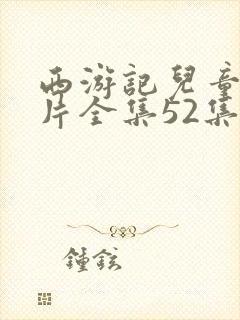 西游記兒童
片全集52集
鍾鉉